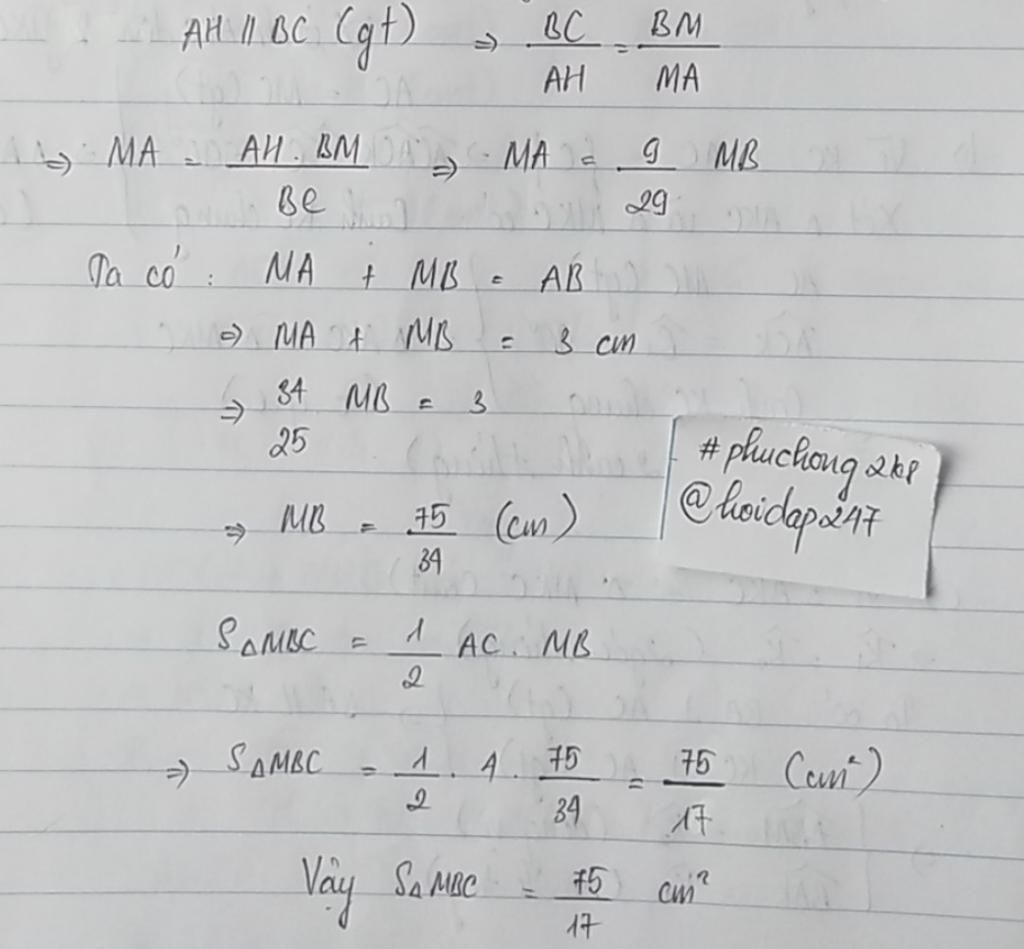 AH // BC (gt) ⇒ BC/AH = BM/MA
⇒ MA = AH . BM/BC ⇒ MA = 9/29 MB
Ta có : MA + MB = AB
⇒ MA + MB = 3 cm
⇒ 34/25 MB = 3
#phuchong2k8
@hoidap247
⇒ MB = 75/34 (cm)
S△MBC = 1/2 AC . MB
⇒ S△MBC = 1/2 . 4 . 75/34 = 75/17 (cm²)
Vậy S△MBC = 75/17 cm²